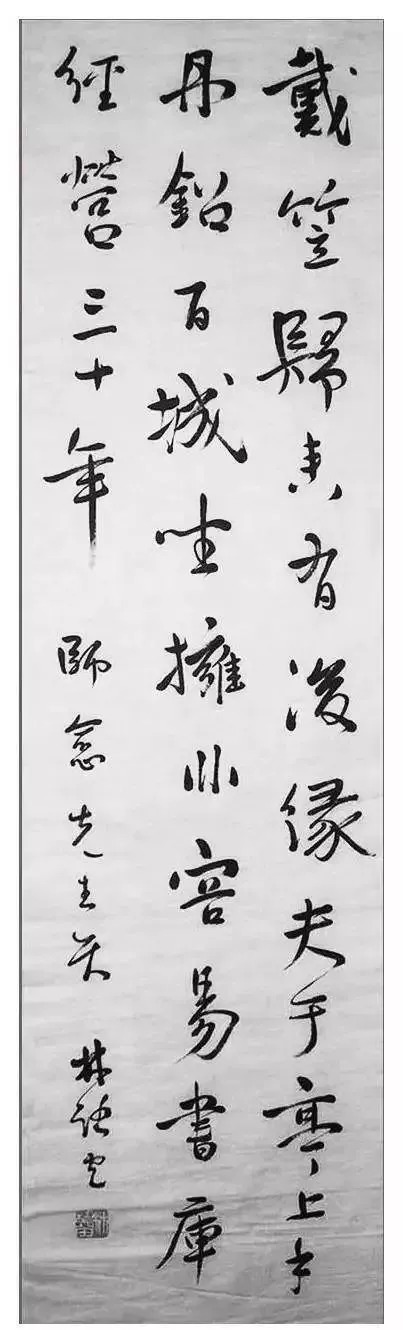 戴笠歸來有後緣夫于亭上手
丹鉛百城坐擁非容易書庫
經營三十年 師念先生 林語堂